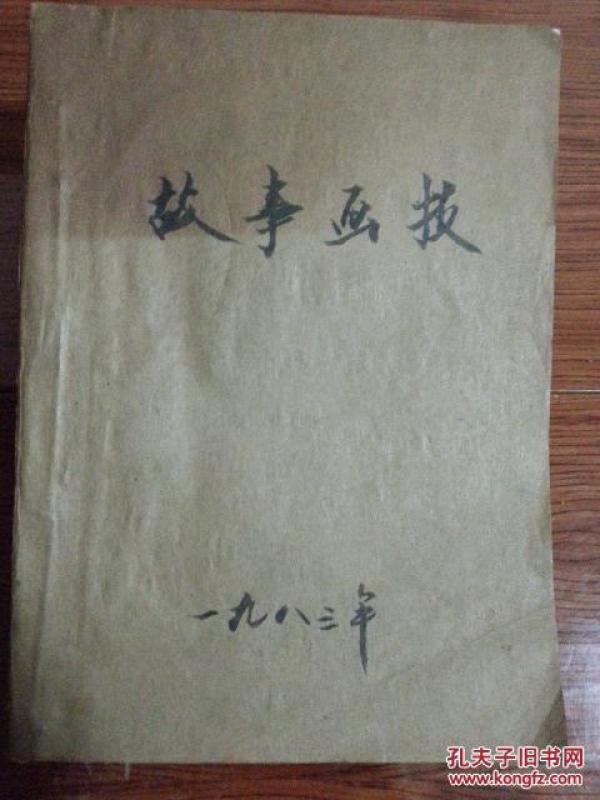 故事画技
一九八三年
孔夫子旧书网
www.kongfz.com